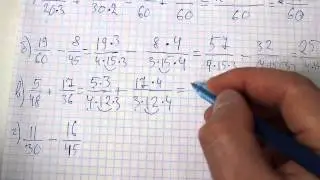 20·3 30·2 60 60 60
б) 19/60 - 8/45 = 19·3/4·15·3 - 8·4/3·15·4 = 57/4·15·3 - 32/ = 25/
в) 5/48 + 17/36 = 5·3/4·12·3 + 17·4/3·12·4 =
г) 11/30 - 16/45